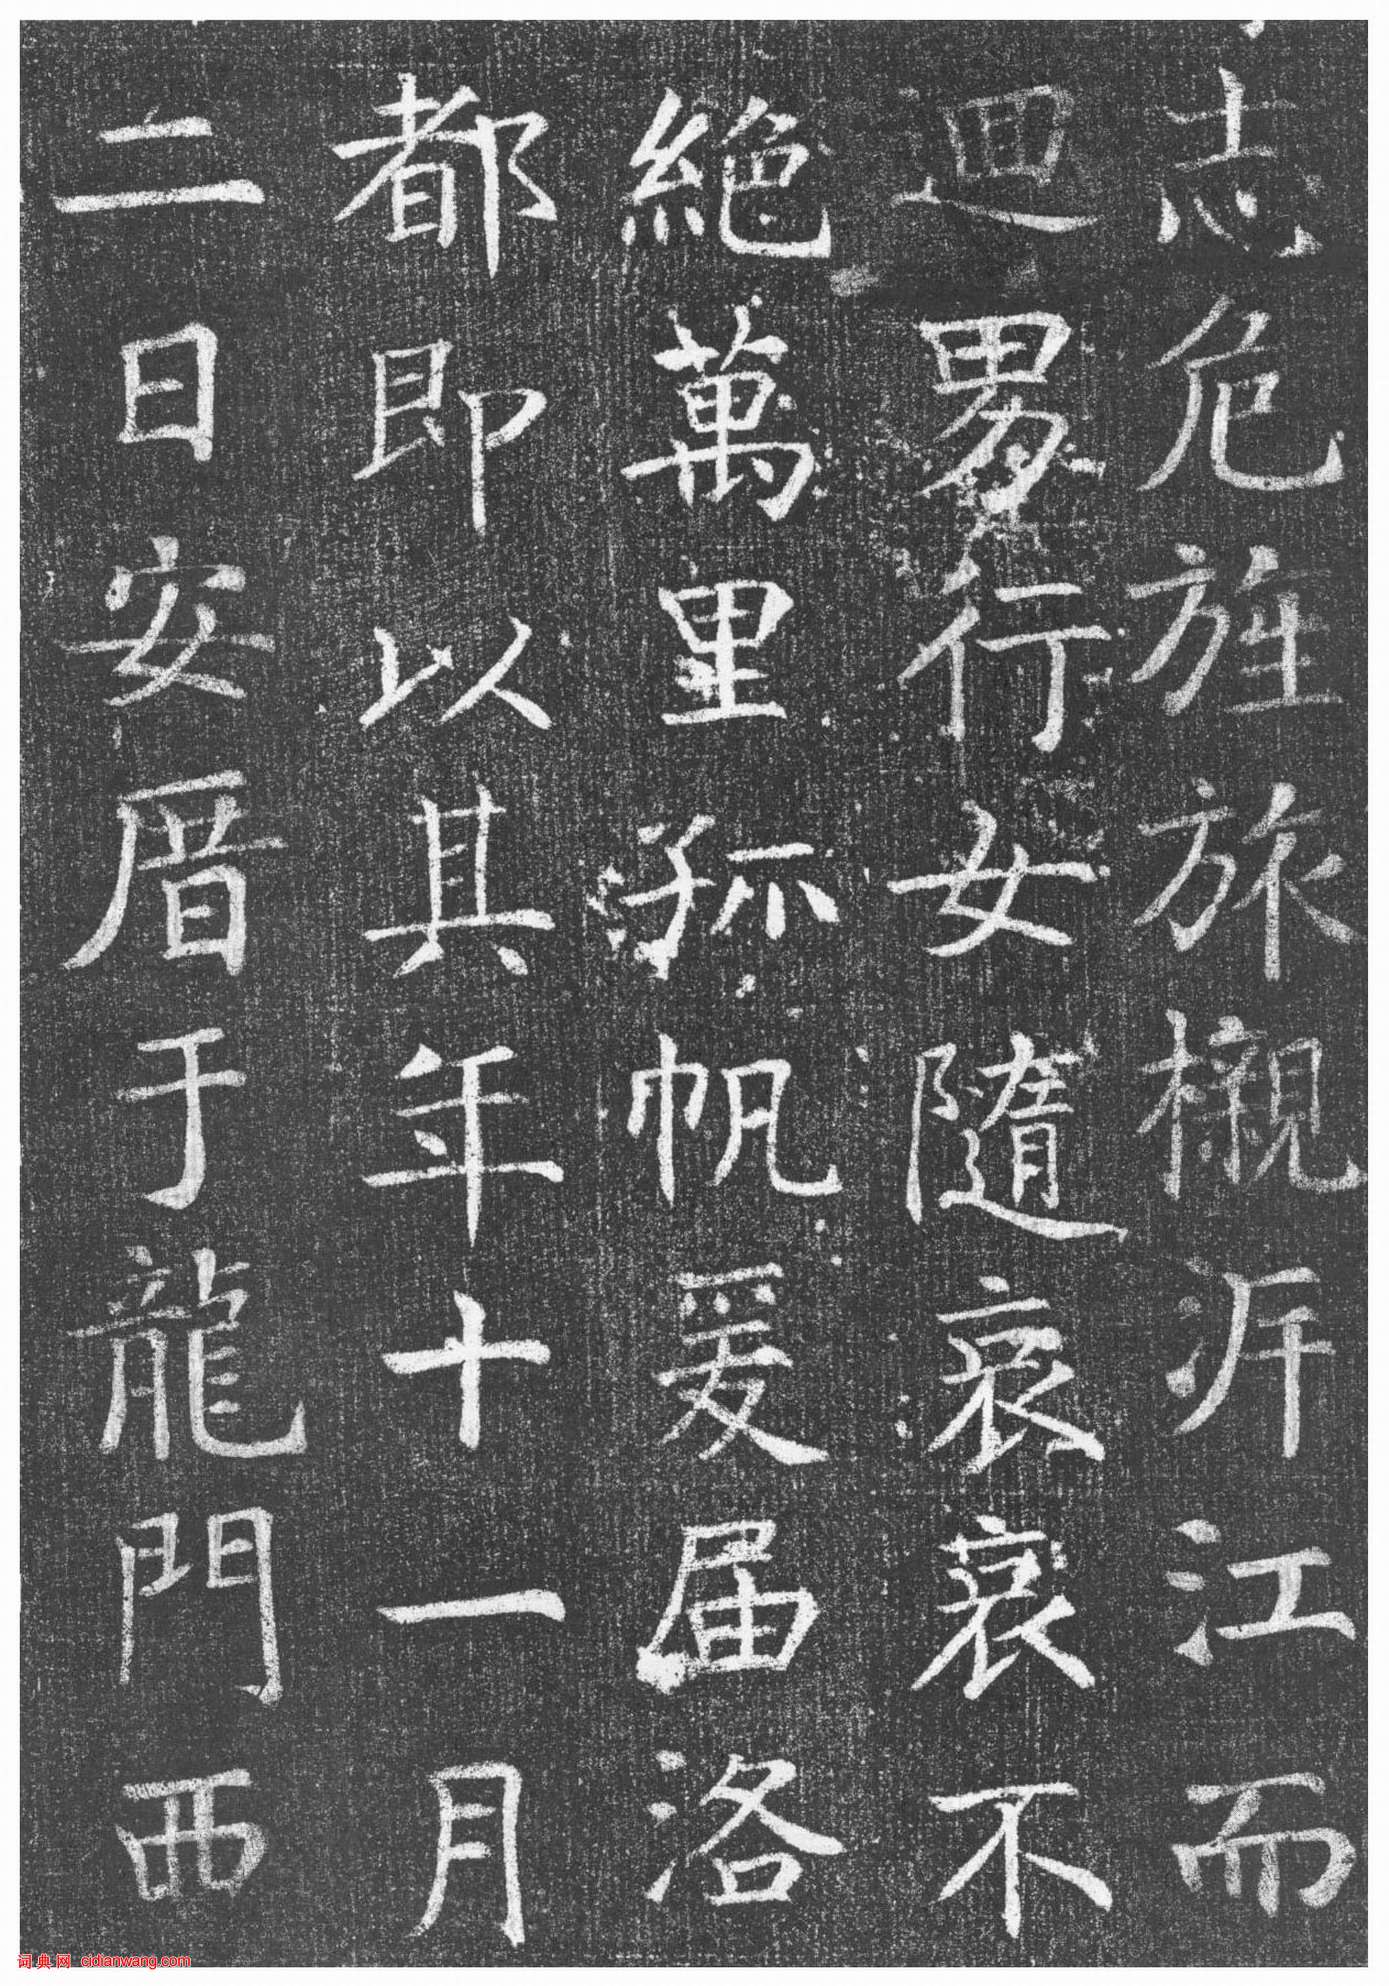 志危旌旅櫬泝江而
迴男行女隨哀哀不
絕萬里孤帆爰届洛
都即以其年十一月
二日安厝于龍門西
词典网 cidianwang.com